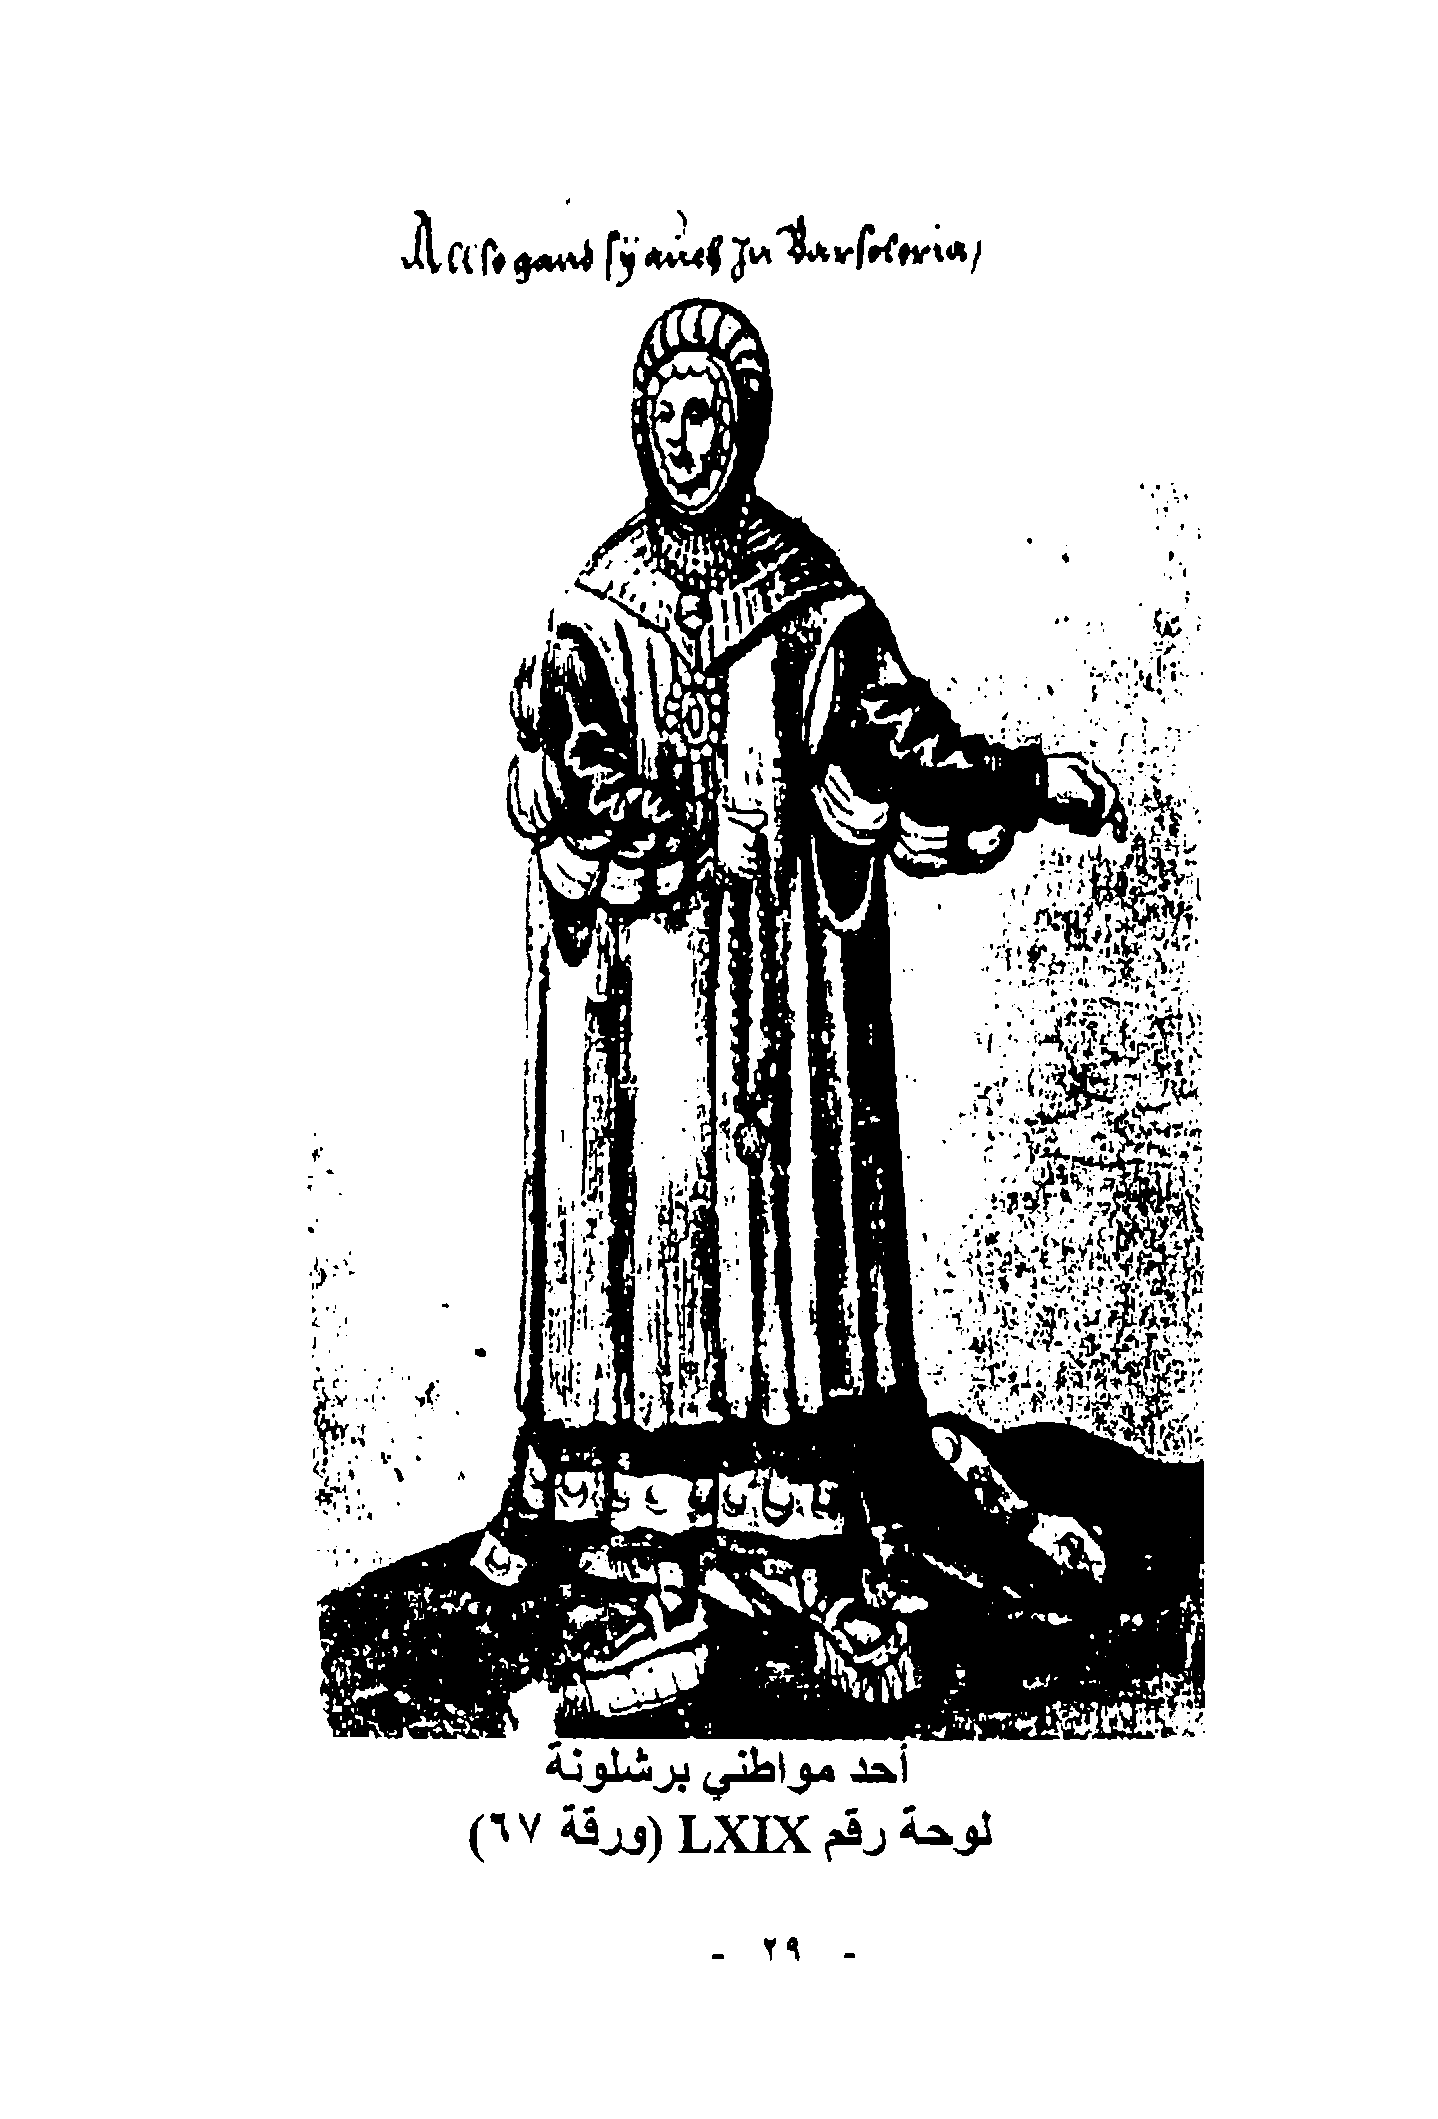 Allso gand sÿ auch In Barseloria /
أحد مواطني برشلونة
لوحة رقم LXIX (ورقة ٦٧)
- ٢٩ -